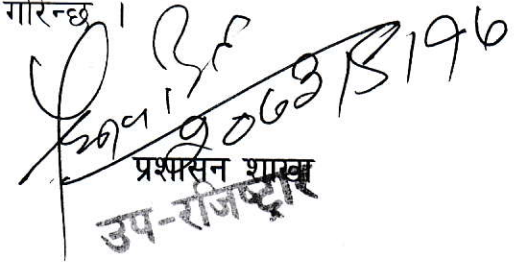 गरिन्छ ।
२०६३/५/१६
प्रशासन शाखा
उप-रजिष्ट्रार